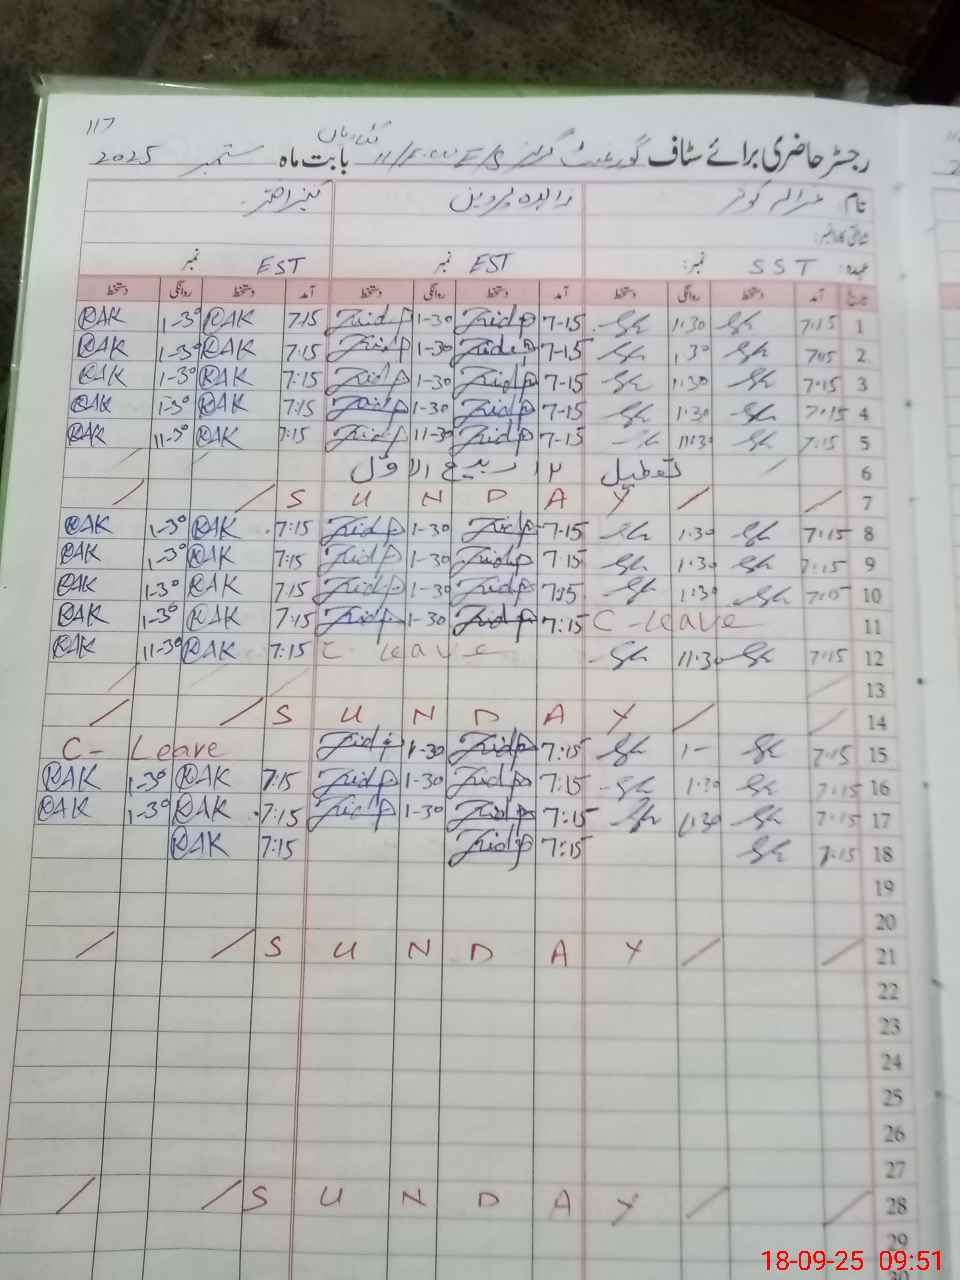 117
رجسٹر حاضری برائے سٹاف گورنمنٹ گرلز E/S بابت ماہ ستمبر 2025
نام کوثر زاہدہ پروین کنیز اختر
شناختی کارڈ نمبر:
عہدہ: SST نمبر: EST نمبر EST نمبر
تاریخ آمد دستخط روانگی دستخط آمد دستخط روانگی دستخط آمد دستخط روانگی دستخط
RAK 1-30 RAK 7:15 1-30 7-15 1:30 7:15 1
RAK 1-30 RAK 7:15 1-30 7-15 1:30 7:15 2
RAK 1-30 RAK 7:15 1-30 7-15 1:30 7:15 3
RAK 1-30 RAK 7:15 1-30 7-15 1:30 7:15 4
RAK 11-30 RAK 7:15 11-30 7-15 11:30 7:15 5
تعطیل ۱۲ ربیع الاول 6
/ / S U N D A Y / / 7
RAK 1-30 RAK 7:15 1-30 7-15 1:30 7:15 8
RAK 1-30 RAK 7:15 1-30 7:15 1:30 7:15 9
RAK 1-30 RAK 7:15 1-30 7:15 1:30 7:15 10
RAK 1-30 RAK 7:15 1-30 7:15 C-Leave 11
RAK 11-30 RAK 7:15 C Leave 11:30 7:15 12
13
/ / S U N D A Y / / 14
C- Leave 1-30 7:15 1- 7:15 15
RAK 1-30 RAK 7:15 1-30 7:15 1:30 7:15 16
RAK 1-30 RAK 7:15 1-30 7:15 1:30 7:15 17
RAK 7:15 7:15 7:15 18
19
20
/ / S U N D A Y / / 21
22
23
24
25
26
27
/ / S U N D A Y / / 28
29
18-09-25 09:51